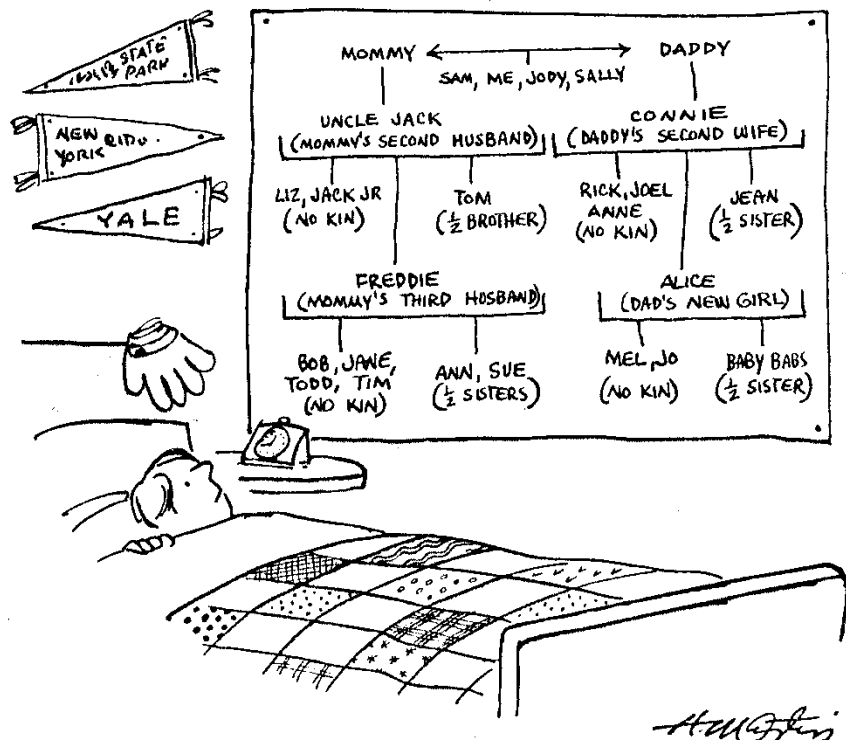 STATE
PARK
NEW
YORK
YALE
MOMMY DADDY
SAM, ME, JODY, SALLY
UNCLE JACK
(MOMMY'S SECOND HUSBAND)
CONNIE
(DADDY'S SECOND WIFE)
LIZ, JACK JR
(NO KIN)
TOM
(½ BROTHER)
RICK, JOEL
ANNE
(NO KIN)
JEAN
(½ SISTER)
FREDDIE
(MOMMY'S THIRD HUSBAND)
ALICE
(DAD'S NEW GIRL)
BOB, JANE,
TODD, TIM
(NO KIN)
ANN, SUE
(½ SISTERS)
MEL, JO
(NO KIN)
BABY BABS
(½ SISTER)